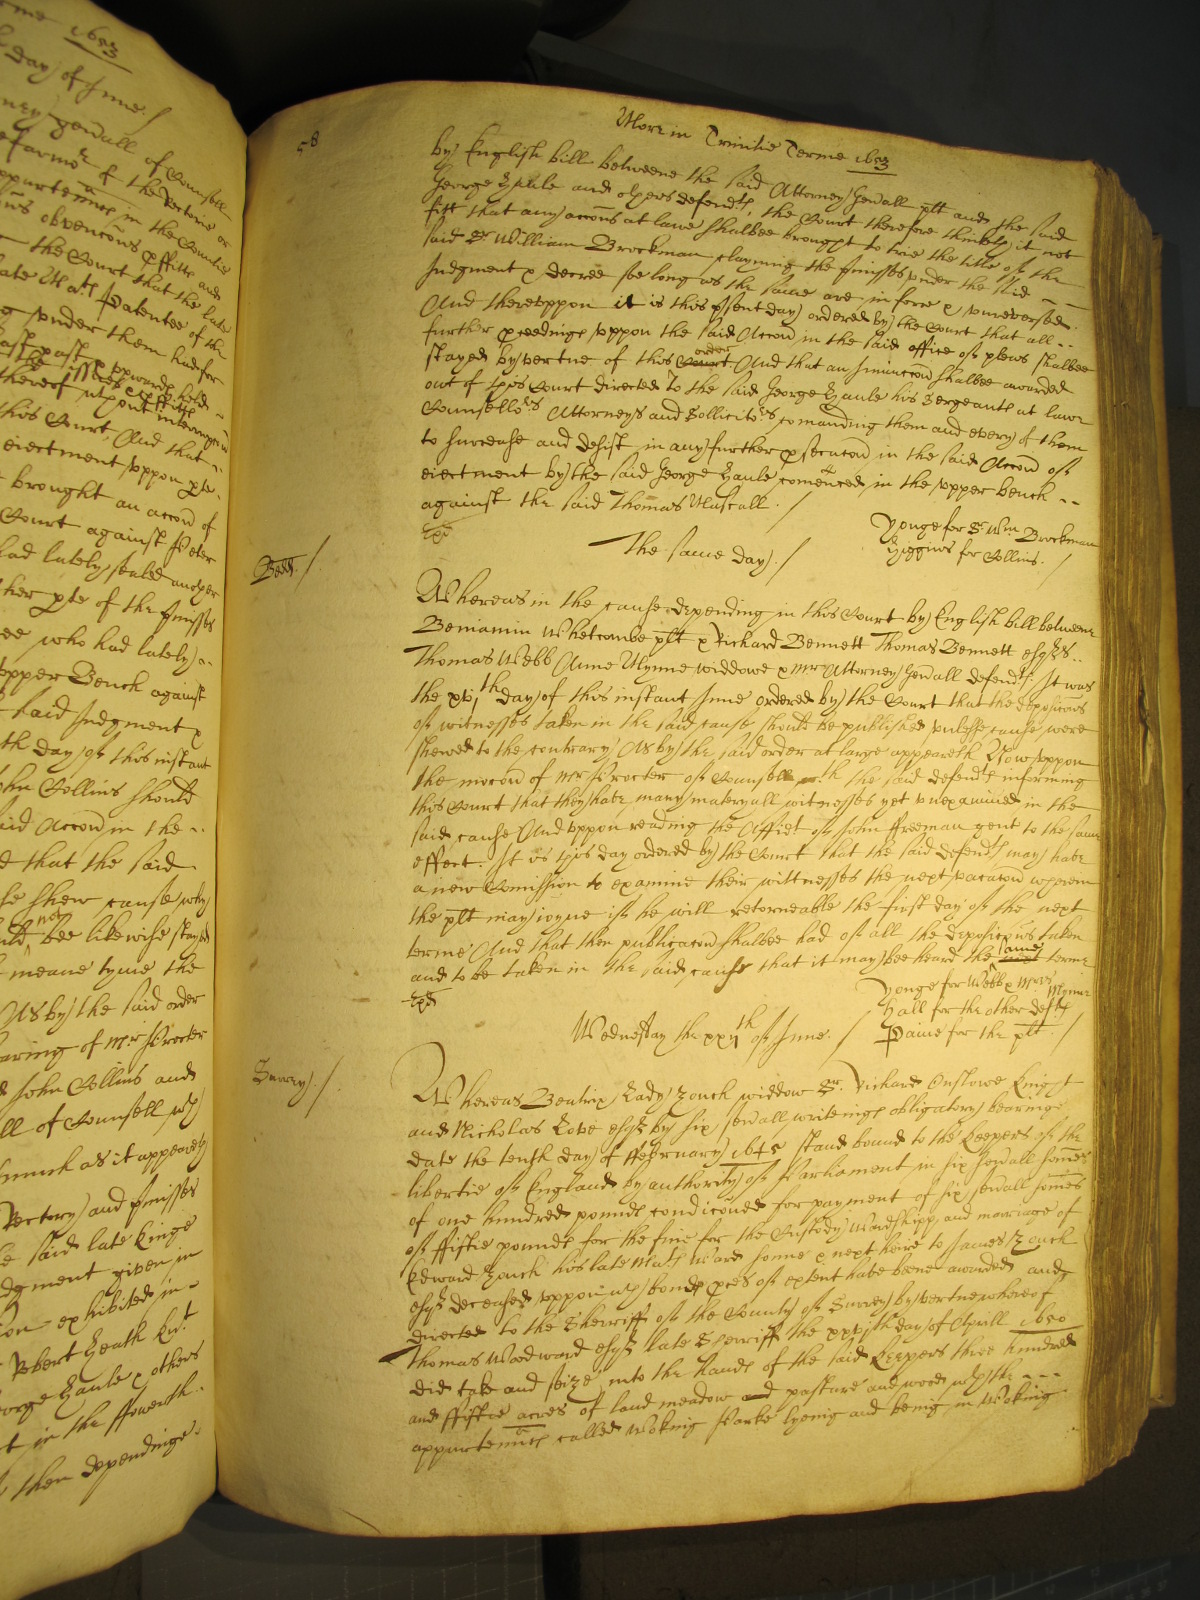 rme 1653
day of June
ney gen'all of Counsell
Farmor of the Rectorie or
ppurtennces in the Countie
obvencons & ffitts and
the Court that the late
late Mats Patentee of the
g under them had for
past & upwards held
thereof uppon interrogat
this Court, And that
eiectment uppon pte
brought an accon of
Court against Peter
had lately sealed another
ther pte of the p'misses
ee who had lately
upper Bench against
said Judgment &
th day of this instant
ohn Collins should
aid Accon in the
d that the said
se shew cause why
uld not bee likewise stayed
meane tyme the
As by the said order
earing of Mr Procter
d John Collins and
ll of Counsell wth
smuch as it appeareth
Rectory and p'misses
e said late kinge
dgment given in
ion exhibited in
Robert Heath knt
eorge Haule & others
t in the ffowerth
then dependinge
58
More in Trinitie Terme 1653
by English bill betweene the said Attorney Gen'all plt and the said
George Haule and others defendts, the Court therefore thinketh it not
fitt that any accons at lawe shalbee brought to trie the title of the
said Sr William Brockman clayming the p'misses under the said
Judgment & decree soe long as the same are in force & unreversed.
And thereuppon it is this p'sent day ordered by the Court that all
further p'ceedings uppon the said Accon in the said office of pleas shalbee
stayed by vertue of this Court order And that an Iniunccon shalbee awarded
out of this Court directed to the said George Haule his Sergeants at lawe
Counsellors Attorneys and Sollicitors comanding them and every of them
to surcease and desist in any further p'secucon in the said Accon of
eiectment by the said George Haule comenced in the upper bench
against the said Thomas Mascall. /
Yonge for Sr Wm Brockman
Higgins for Collins. /
The same day. /
Bedd. /
Whereas in the cause depending in this Court by English bill betweene
Beniamin Whetcombe plt & Richard Bennett Thomas Bennett esqrs
Thomas Webb Anne Wynne widdowe & Mr Attorney Gen'all defendts. It was
the xvjth day of this instant June ordered by the Court that the deposicons
of witnesses taken in the said cause should be published unlesse cause were
shewed to the contrary As by the said order at large appeareth Now uppon
the mocon of Mr Procter of Counsell wth the said defendts informing
this Court that they have many materyall witnesses yet unexamined in the
said cause And uppon reading the Affidt of John Freeman gent to the same
effect. It is this day ordered by the Court that the said defendts may have
a new Comission to examine their wittnesses the next vacacon wherein
the plt may ioyne if he will retorneable the first day of the next
terme And that then publicacon shalbee had of all the deposicons taken
and to be taken in the said cause that it may bee heard the same terme
Yonge for Webb & Mrs Wynne
Hall for the other defts
Paine for the plt. /
Wednesday the xxijth of June. /
Surrey. /
Whereas Beatrix Lady Zouch widdow Sr Richard Onslowe Knight
and Nicholas Love esqr by six sev'all writings obligatory bearinge
date the tenth day of ffebruary 1645 stand bound to the keepers of the
libertie of England by authority of Parliament in six sev'all somes
of one hundred pounds condiconed for payment of six sev'all somes
of ffiftie pounds for the fine for the Custody Wardshipp and marriage of
Edward Zouch his late Mats Ward sonne & next heire to James Zouch
esqr deceased uppon wch bonds p'ces of extent have beene awarded and
directed to the Sherriff of the County of Surrey by vertue whereof
Thomas Woodward esqr late Sherriff the xxvjth day of Aprill 1650
did take and seize into the hands of the said keepers three hundred
and ffiftie acres of land meadow and pasture and wood wth the
appurtennces called Woking Parke lyeing and being in Woking